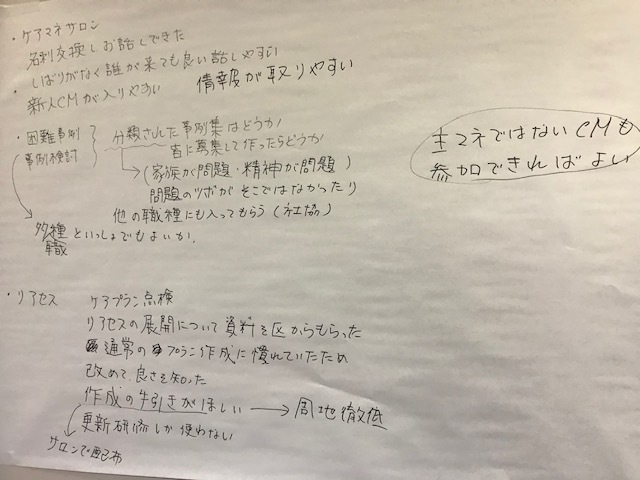 ・ケアマネサロン
名刺交換しお話しできた
しばりがなく誰が来ても良い話しやすい
・新人CMが入りやすい 情報が取りやすい
・困難事例
事例検討
分類された事例集はどうか
皆に募集して作ったらどうか
(家族が問題・精神が問題)
問題のツボがそこではなかったり
他の職種にも入ってもらう(社協)
多種
職
といっしょでもよいか.
主マネではないCMも
参加できればよい
・リアセス ケアプラン点検
リアセスの展開について資料を区からもらった
通常のプラン作成に慣れていたため
改めて良さを知った
作成の手引きがほしい → 周地徹底
更新研修しか使わない
サロンで配布